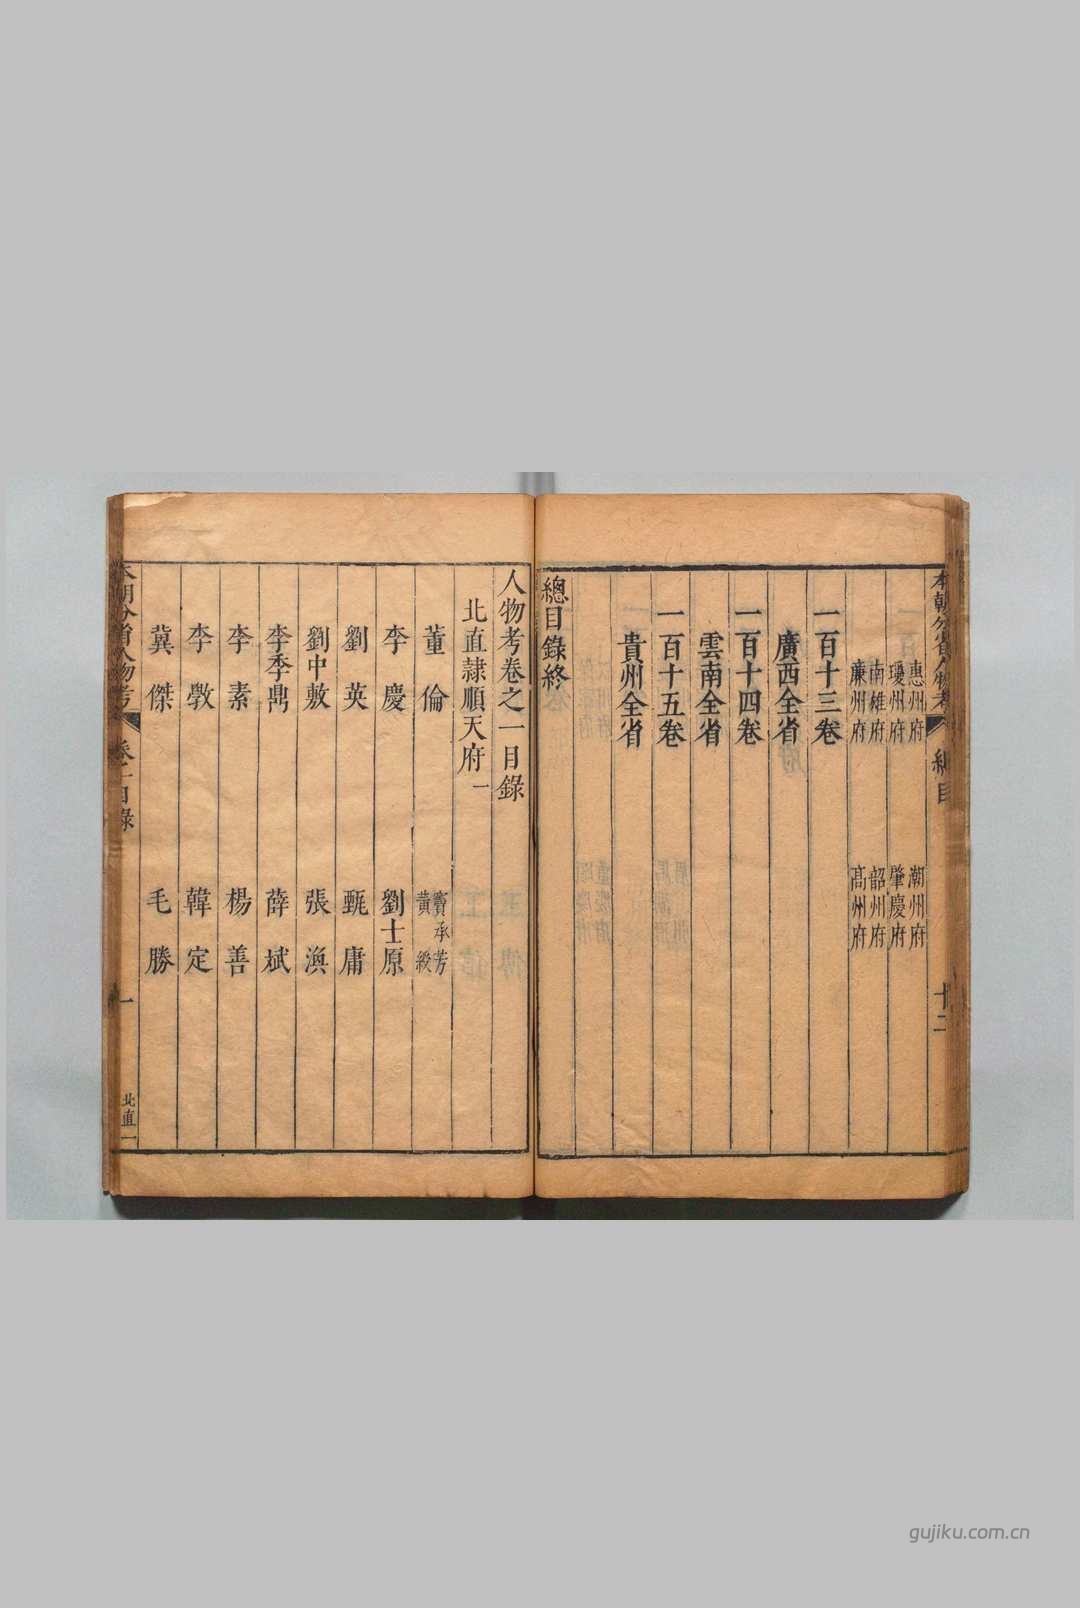 本朝分省人物考
總目
十二
惠州府　潮州府
瓊州府　肇慶府
南雄府　韶州府
廉州府　高州府
一百十三卷
廣西全省
一百十四卷
雲南全省
一百十五卷
貴州全省
總目錄終
人物考卷之一目錄
北直隷順天府一
董倫　竇承芳　黃綬
李慶　劉士原
劉英　甄庸
劉中敷　張渙
李季鼎　薛斌
李素　楊善
李斆　韓定
冀傑　毛勝
本朝分省人物考
卷一目錄
一
北直一
gujiku.com.cn